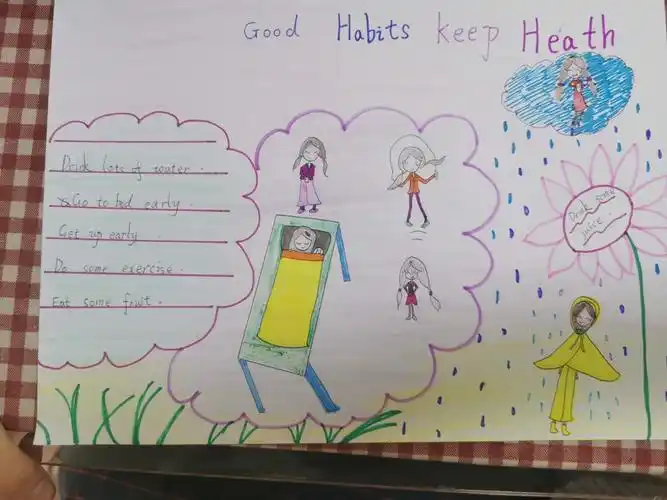 Good Habits keep Heath
Drink lots of water.
Go to bed early.
Get up early.
Do some exercise.
Eat some fruit.
Drink some
juice.